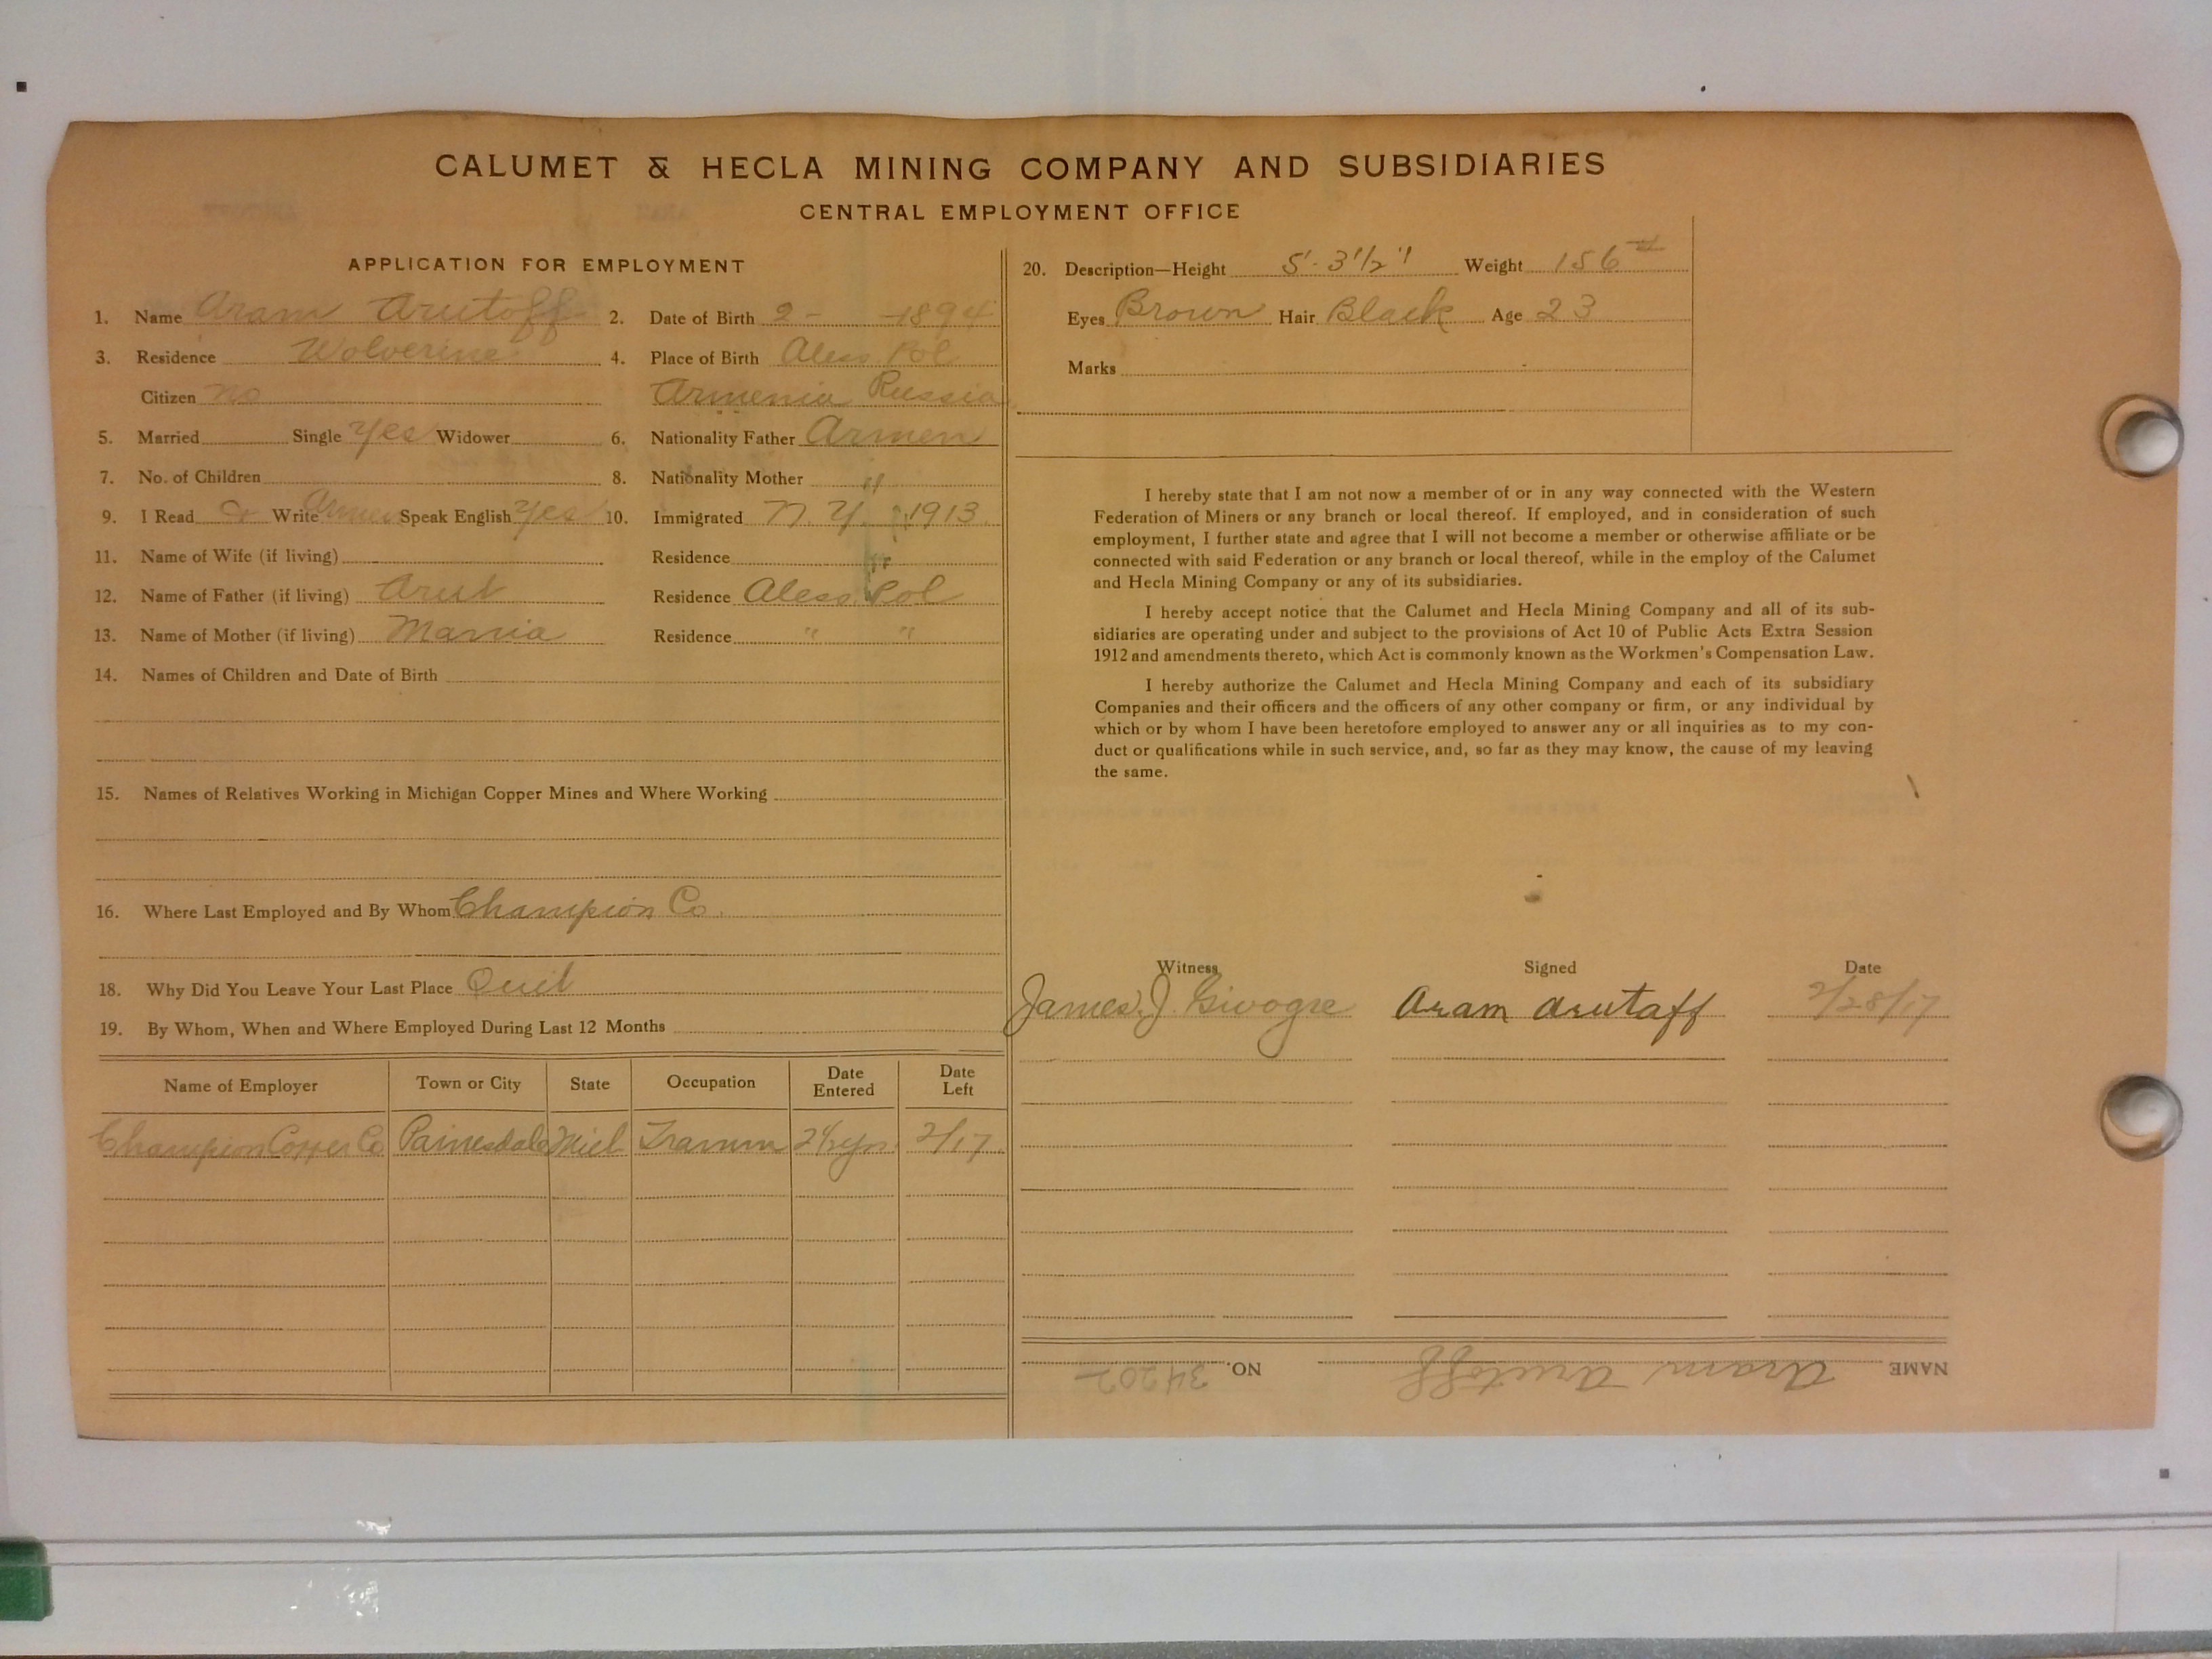 CALUMET & HECLA MINING COMPANY AND SUBSIDIARIES
CENTRAL EMPLOYMENT OFFICE
APPLICATION FOR EMPLOYMENT
1. Name Aram Arutoff 2. Date of Birth 2 - -1894
3. Residence Wolverine 4. Place of Birth Aless Pol
Citizen no Armenia Russia
5. Married Single Yes Widower 6. Nationality Father Armen
7. No. of Children 8. Nationality Mother "
9. I Read & Write Armen Speak English Yes 10. Immigrated N. Y. 1913
11. Name of Wife (if living) Residence "
12. Name of Father (if living) Arut Residence Aless Pol
13. Name of Mother (if living) Residence " "
14. Names of Children and Date of Birth
15. Names of Relatives Working in Michigan Copper Mines and Where Working
16. Where Last Employed and By Whom Champion Co.
18. Why Did You Leave Your Last Place Quit
19. By Whom, When and Where Employed During Last 12 Months
Name of Employer Town or City State Occupation Date Entered Date Left
Champion Copper Co Painesdale Mich Tramm 2½ yrs. 2/17
20. Description—Height 5'. 3½" Weight 156#
Eyes Brown Hair Black Age 23
Marks
I hereby state that I am not now a member of or in any way connected with the Western
Federation of Miners or any branch or local thereof. If employed, and in consideration of such
employment, I further state and agree that I will not become a member or otherwise affiliate or be
connected with said Federation or any branch or local thereof, while in the employ of the Calumet
and Hecla Mining Company or any of its subsidiaries.
I hereby accept notice that the Calumet and Hecla Mining Company and all of its sub-
sidiaries are operating under and subject to the provisions of Act 10 of Public Acts Extra Session
1912 and amendments thereto, which Act is commonly known as the Workmen's Compensation Law.
I hereby authorize the Calumet and Hecla Mining Company and each of its subsidiary
Companies and their officers and the officers of any other company or firm, or any individual by
which or by whom I have been heretofore employed to answer any or all inquiries as to my con-
duct or qualifications while in such service, and, so far as they may know, the cause of my leaving
the same.
Witness Signed Date
James J. Aram Arutaff 2/28/17
NAME Aram Arutoff NO. 34202